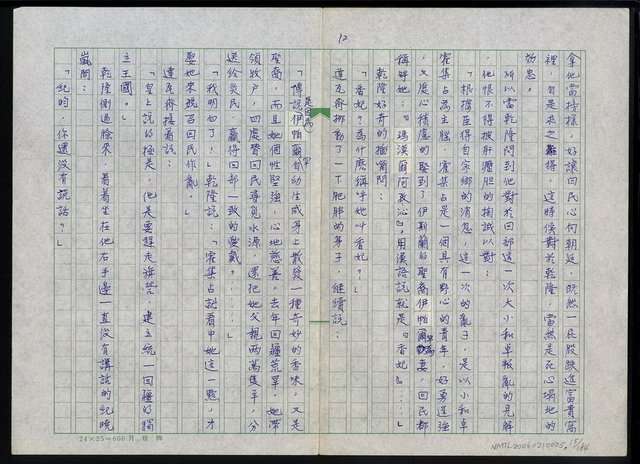 12.
拿他當榜樣，好讓回民心向朝廷，既然一屁股跌進富貴窩
裡，自是求之難得，這時候對於乾隆，當然是死心塌地的
効忠。
所以當乾隆問到他對於回部這一次大小和卓叛亂的見解
，他恨不得披肝瀝胆的掬誠以對：
「根據臣得自家鄉的消息，這一次的亂子，是以小和卓
霍集占為主腦，霍集占是一個具有野心的青年，好勇逞強
，又處心積慮的娶到了伊斯蘭的聖裔伊帕爾為妻，回民都
稱呼她：『瑪漢爾阿孜沁』，用漢語說就是『香妃』……」
乾隆好奇的插嘴問：
「香妃？為什麼稱呼她叫香妃？」
達瓦齊挪動了一下肥胖的身子，繼續說：
「傳說伊帕爾自幼生成身上散發一種奇妙的香味，又是
聖裔，而且她個性堅強，心地慈善，去年回疆荒旱，她帶
領牧戶，四處替回民尋覓水源，還把她父親兩萬隻羊，分
送給災民，贏得回部一致的愛戴？……」
「我明白了！」乾隆說：「霍集占就看中她這一點，才
娶她來號召回民作亂。」
達瓦齊接着說：
「皇上說的極是，他是要趕走旗營，建立統一回疆的獨
立王國。」
乾隆側過臉來，看着坐在他右手邊一直沒有講話的紀曉
嵐問：
「紀昀，你還沒有說話？」
24×25=600
NMTL20060210025
15/184